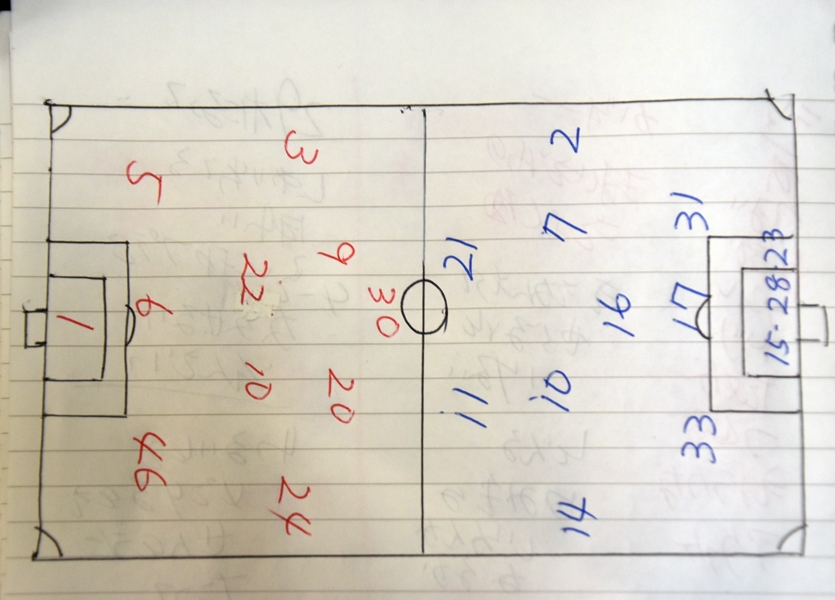 3
5
9
22
30
6
1
10
20
46
24
2
7
31
21
16
17
15·28·23
11
10
33
14